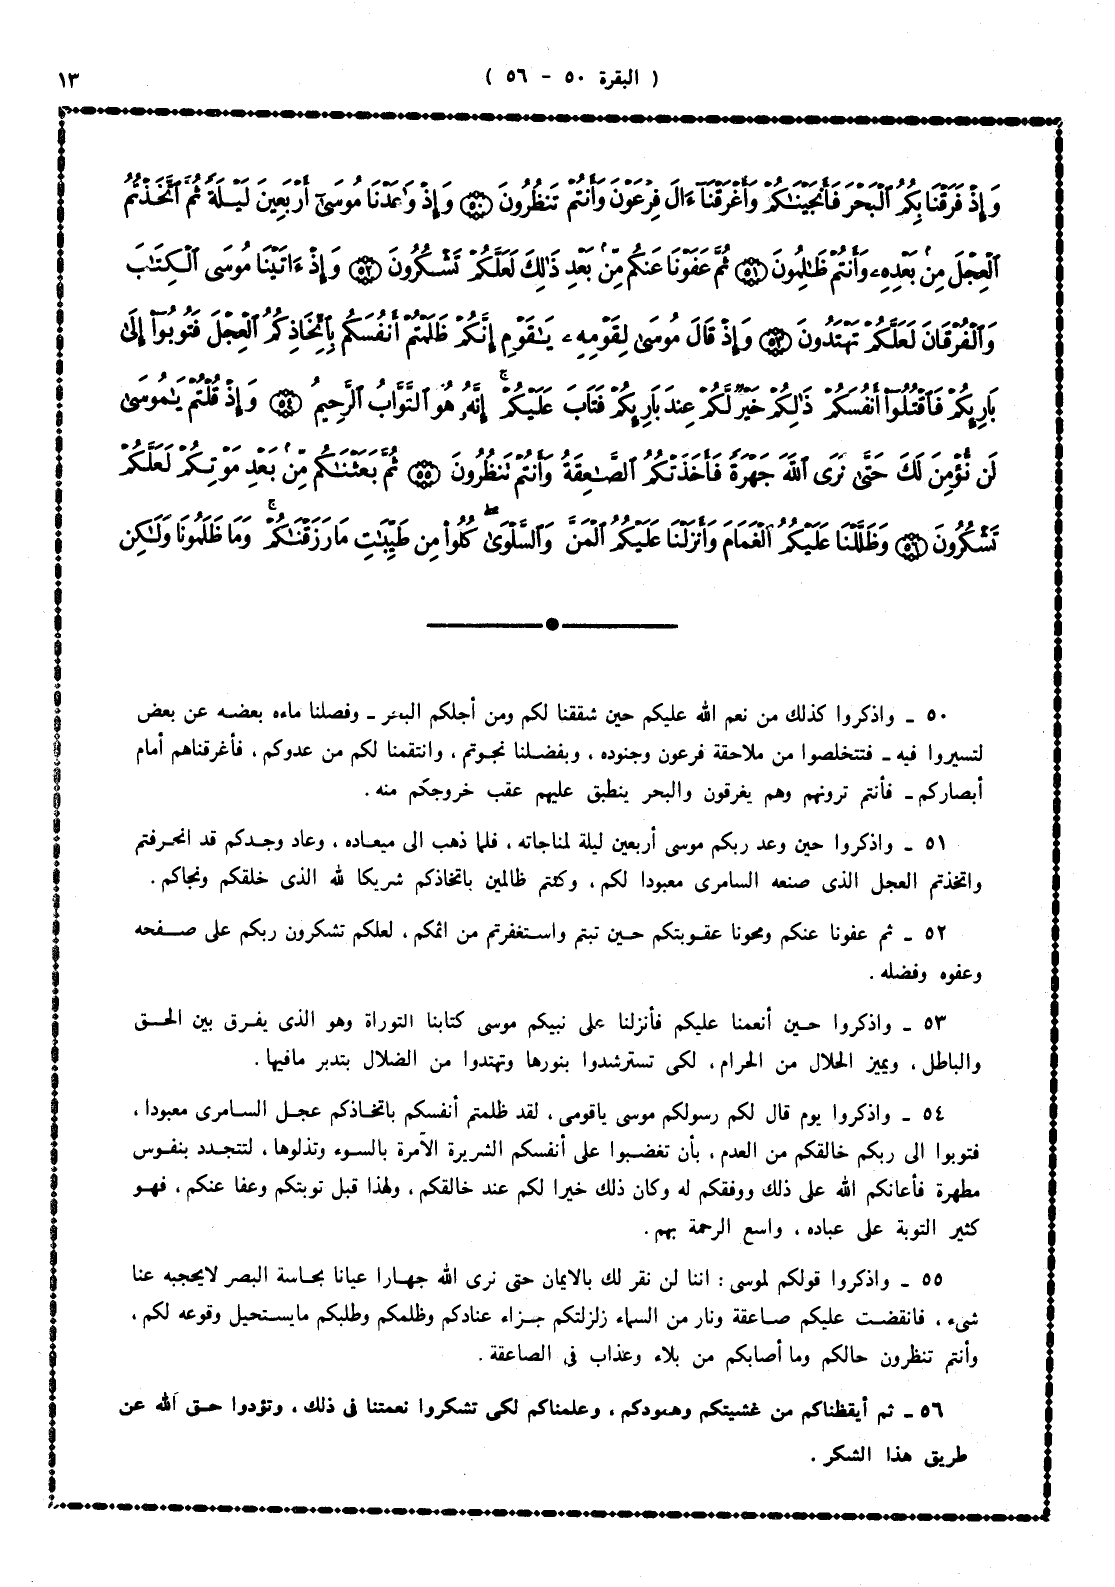 ( البقرة ٥٠ - ٥٦ )
١٣
وَإِذْ فَرَقْنَا بِكُمُ ٱلْبَحْرَ فَأَنجَيْنَـٰكُمْ وَأَغْرَقْنَآ ءَالَ فِرْعَوْنَ وَأَنتُمْ تَنظُرُونَ ٥٠ وَإِذْ وَٰعَدْنَا مُوسَىٰٓ أَرْبَعِينَ لَيْلَةً ثُمَّ ٱتَّخَذْتُمُ
ٱلْعِجْلَ مِنۢ بَعْدِهِۦ وَأَنتُمْ ظَـٰلِمُونَ ٥١ ثُمَّ عَفَوْنَا عَنكُم مِّنۢ بَعْدِ ذَٰلِكَ لَعَلَّكُمْ تَشْكُرُونَ ٥٢ وَإِذْ ءَاتَيْنَا مُوسَى ٱلْكِتَـٰبَ
وَٱلْفُرْقَانَ لَعَلَّكُمْ تَهْتَدُونَ ٥٣ وَإِذْ قَالَ مُوسَىٰ لِقَوْمِهِۦ يَـٰقَوْمِ إِنَّكُمْ ظَلَمْتُمْ أَنفُسَكُم بِٱتِّخَاذِكُمُ ٱلْعِجْلَ فَتُوبُوٓا۟ إِلَىٰ
بَارِئِكُمْ فَٱقْتُلُوٓا۟ أَنفُسَكُمْ ذَٰلِكُمْ خَيْرٌ لَّكُمْ عِندَ بَارِئِكُمْ فَتَابَ عَلَيْكُمْ ۚ إِنَّهُۥ هُوَ ٱلتَّوَّابُ ٱلرَّحِيمُ ٥٤ وَإِذْ قُلْتُمْ يَـٰمُوسَىٰ
لَن نُّؤْمِنَ لَكَ حَتَّىٰ نَرَى ٱللَّهَ جَهْرَةً فَأَخَذَتْكُمُ ٱلصَّـٰعِقَةُ وَأَنتُمْ تَنظُرُونَ ٥٥ ثُمَّ بَعَثْنَـٰكُم مِّنۢ بَعْدِ مَوْتِكُمْ لَعَلَّكُمْ
تَشْكُرُونَ ٥٦ وَظَلَّلْنَا عَلَيْكُمُ ٱلْغَمَامَ وَأَنزَلْنَا عَلَيْكُمُ ٱلْمَنَّ وَٱلسَّلْوَىٰ ۖ كُلُوا۟ مِن طَيِّبَـٰتِ مَا رَزَقْنَـٰكُمْ ۚ وَمَا ظَلَمُونَا وَلَـٰكِن
٥٠ - واذكروا كذلك من نعم الله عليكم حين شققنا لكم ومن أجلكم البحر - وفصلنا ماءه بعضه عن بعض
لتسيروا فيه - فتتخلصوا من ملاحقة فرعون وجنوده ، وبفضلنا نجوتم ، وانتقمنا لكم من عدوكم ، فأغرقناهم أمام
أبصاركم - فأنتم ترونهم وهم يغرقون والبحر ينطبق عليهم عقب خروجكم منه .
٥١ - واذكروا حين وعد ربكم موسى أربعين ليلة لمناجاته ، فلما ذهب الى ميعاده ، وعاد وجدكم قد انحرفتم
واتخذتم العجل الذى صنعه السامرى معبودا لكم ، وكنتم ظالمين باتخاذكم شريكا لله الذى خلقكم ونجاكم .
٥٢ - ثم عفونا عنكم ومحونا عقوبتكم حين تبتم واستغفرتم من اثمكم ، لعلكم تشكرون ربكم على صفحه
وعفوه وفضله .
٥٣ - واذكروا حين أنعمنا عليكم فأنزلنا على نبيكم موسى كتابنا التوراة وهو الذى يفرق بين الحق
والباطل ، ويميز الحلال من الحرام ، لكى تسترشدوا بنورها وتهتدوا من الضلال بتدبر مافيها .
٥٤ - واذكروا يوم قال لكم رسولكم موسى ياقومى ، لقد ظلمتم أنفسكم باتخاذكم عجل السامرى معبودا ،
فتوبوا الى ربكم خالقكم من العدم ، بأن تغضبوا على أنفسكم الشريرة الآمرة بالسوء وتذلوها ، لتتجدد بنفوس
مطهرة فأعانكم الله على ذلك ووفقكم له وكان ذلك خيرا لكم عند خالقكم ، ولهذا قبل توبتكم وعفا عنكم ، فهو
كثير التوبة على عباده ، واسع الرحمة بهم .
٥٥ - واذكروا قولكم لموسى : اننا لن نقر لك بالايمان حتى نرى الله جهارا عيانا بحاسة البصر لايحجبه عنا
شىء ، فانقضت عليكم صاعقة ونار من السماء زلزلتكم جزاء عنادكم وظلمكم وطلبكم مايستحيل وقوعه لكم ،
وأنتم تنظرون حالكم وما أصابكم من بلاء وعذاب فى الصاعقة .
٥٦ - ثم أيقظناكم من غشيتكم وهمودكم ، وعلمناكم لكى تشكروا نعمتنا فى ذلك ، وتؤدوا حق الله عن
طريق هذا الشكر .